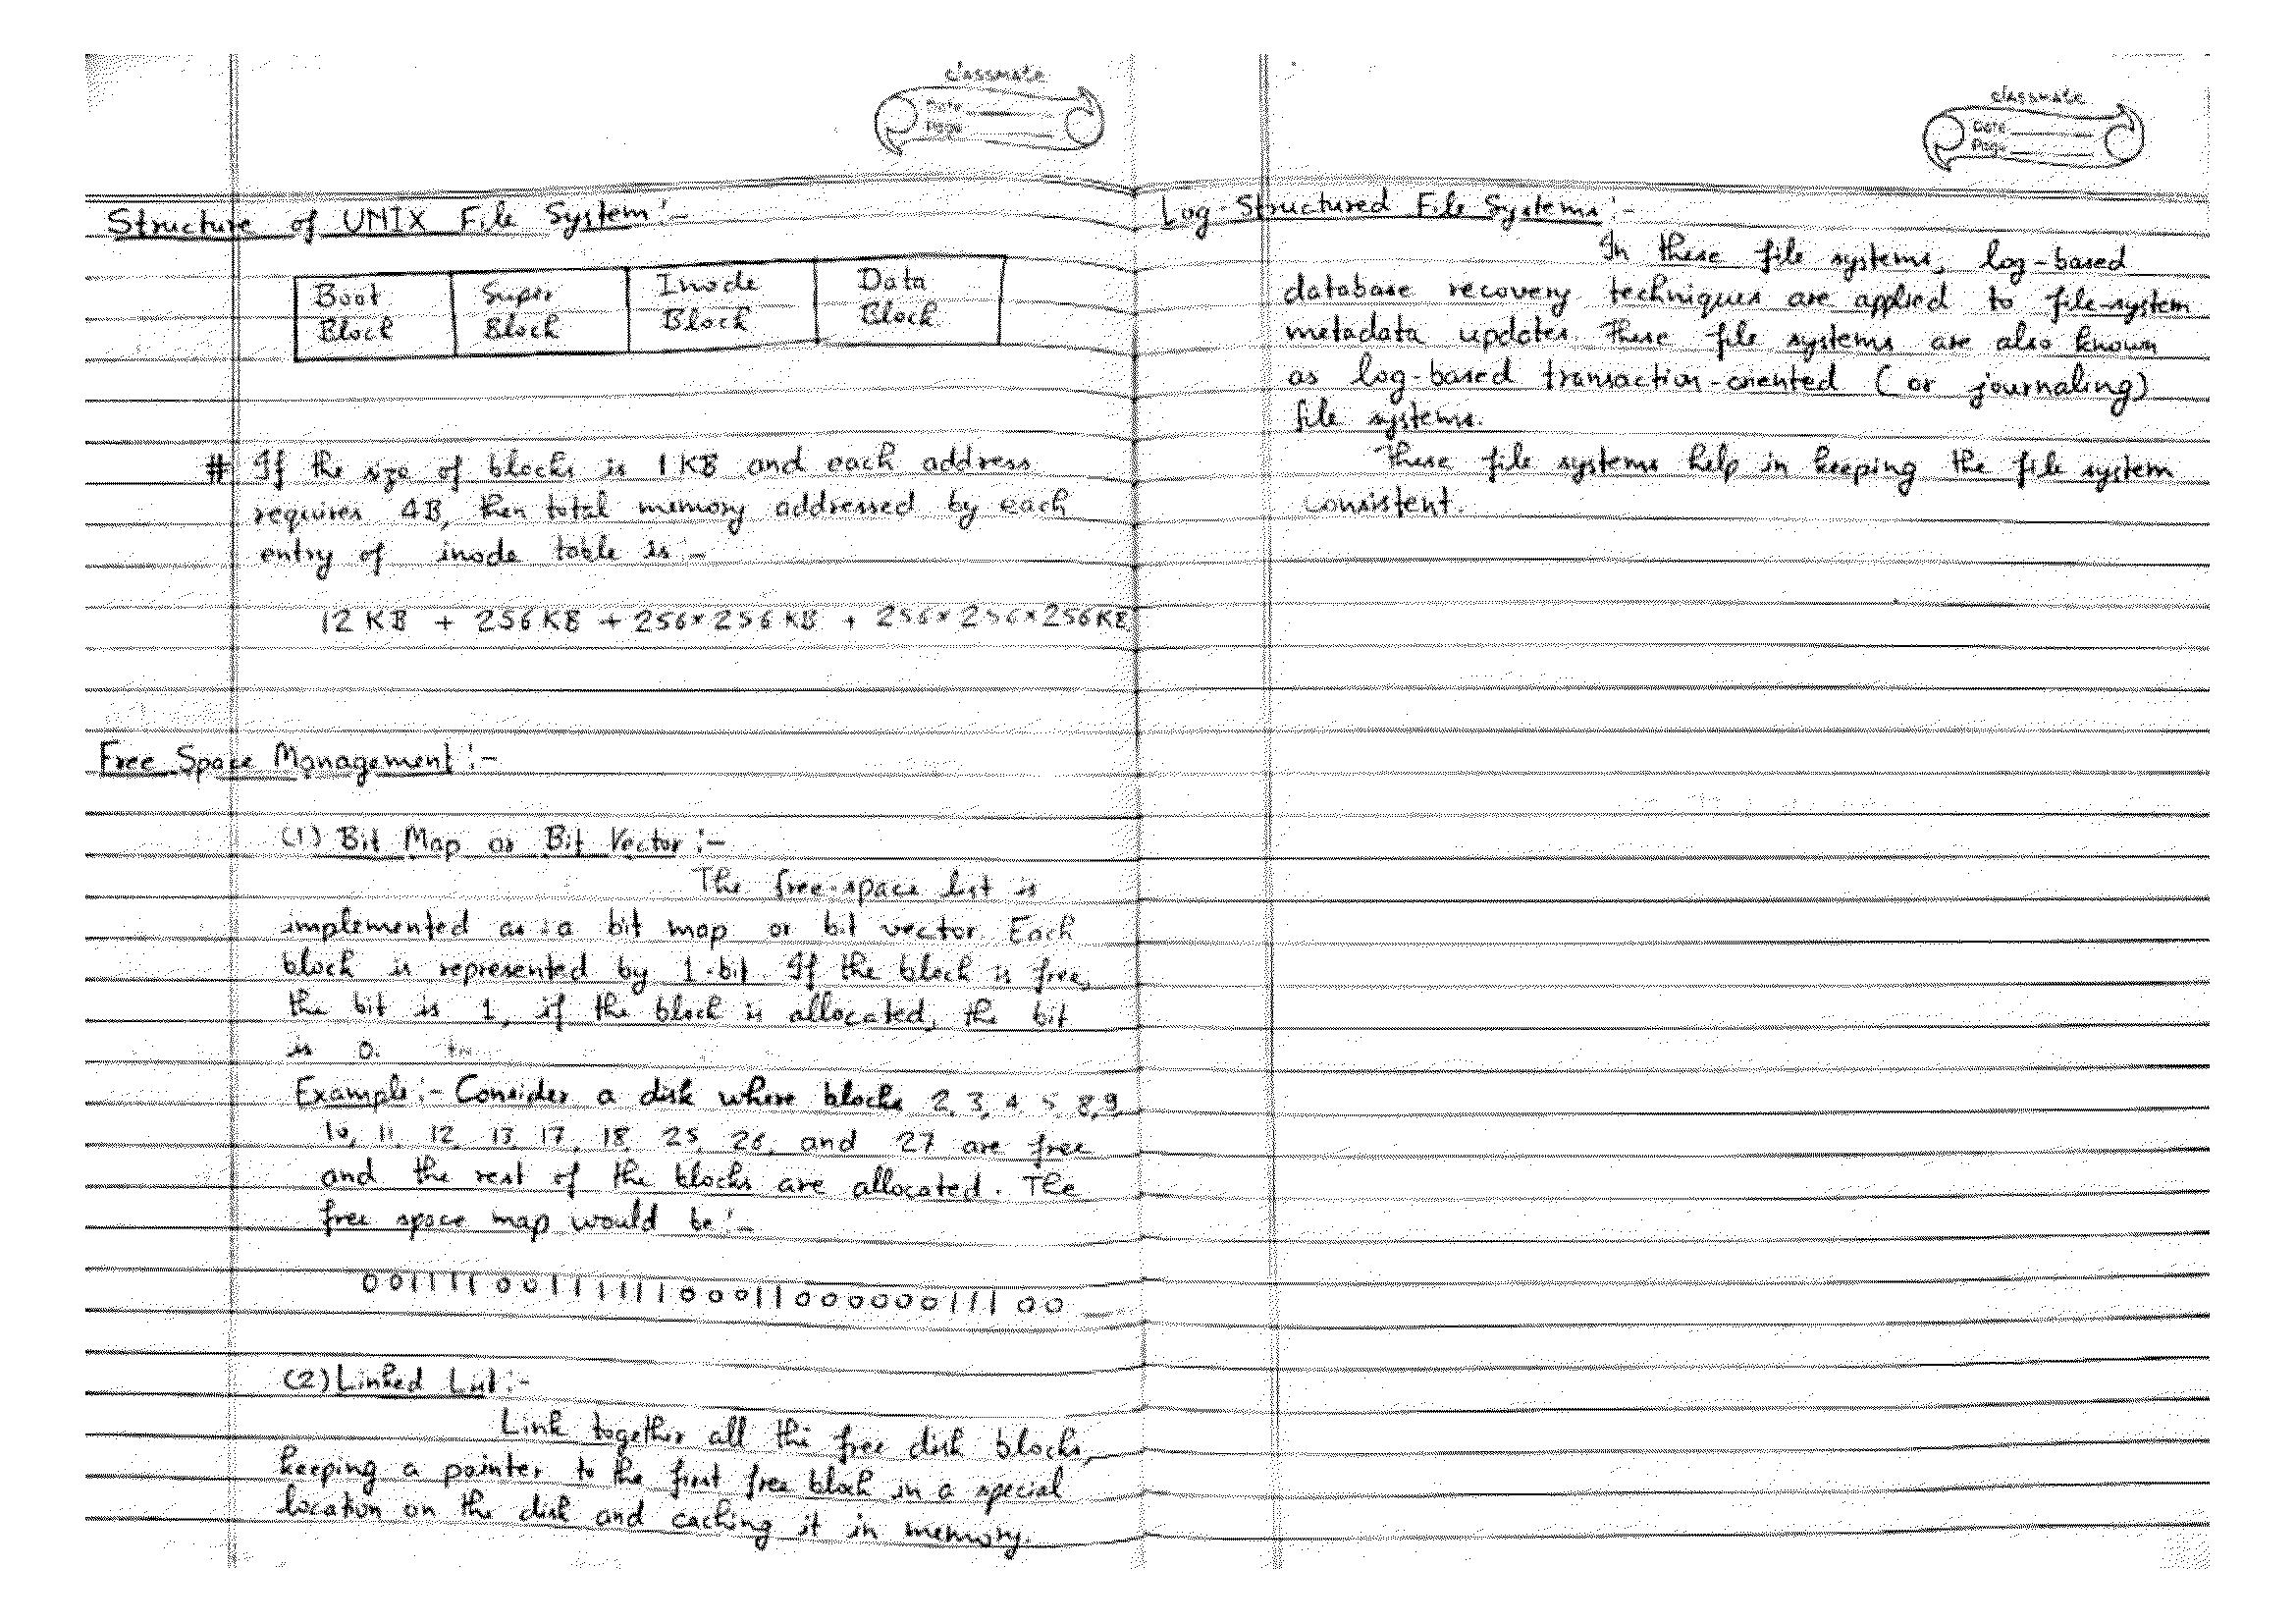 classmate
Date
Page
Structure of UNIX File System:-
Boot Block
Super Block
Inode Block
Data Block
# If the size of blocks is 1 KB and each address
requires 4B, then total memory addressed by each
entry of inode table is:-
12 KB + 256 KB + 256*256 KB + 256*256*256 KB
Free Space Management:-
(1) Bit Map or Bit Vector:-
The free-space list is
implemented as a bit map or bit vector. Each
block is represented by 1-bit. If the block is free,
the bit is 1, if the block is allocated, the bit
is 0.
Example:- Consider a disk where blocks 2, 3, 4, 5, 8, 9
10, 11, 12, 13, 17, 18, 25, 26, and 27 are free
and the rest of the blocks are allocated. The
free space map would be:-
001111001111110001100000011100
(2) Linked List:-
Link together all the free disk blocks,
keeping a pointer to the first free block in a special
location on the disk and caching it in memory.
classmate
Date
Page
Log-Structured File Systems:-
In these file systems, log-based
database recovery techniques are applied to file-system
metadata updates. These file systems are also known
as log-based transaction-oriented (or journaling)
file systems.
These file systems help in keeping the file system
consistent.